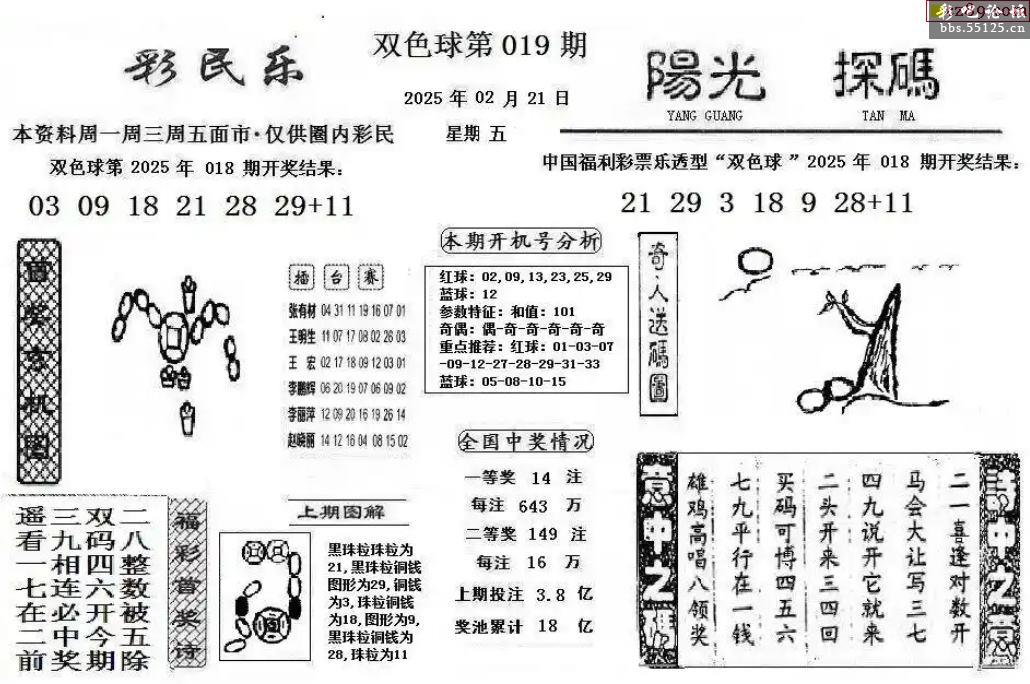 彩吧论坛
bbs.55125.cn
彩民乐
双色球第 019 期
陽光 探碼
YANG GUANG TAN MA
2025 年 02 月 21 日
星期 五
本资料周一周三周五面市·仅供圈内彩民
双色球第 2025 年 018 期开奖结果：
中国福利彩票乐透型“双色球 ”2025 年 018 期开奖结果：
03 09 18 21 28 29+11
21 29 3 18 9 28+11
擂台赛
张有材 04 31 11 19 16 07 01
王明生 11 07 17 08 02 26 03
王 宏 02 17 18 09 12 03 01
李鹏辉 06 20 19 07 06 09 02
李丽萍 12 09 20 16 19 26 14
赵晓丽 14 12 16 04 08 15 02
本期开机号分析
红球：02,09,13,23,25,29
蓝球：12
参数特征：和值：101
奇偶：偶-奇-奇-奇-奇-奇
重点推荐：红球：01-03-07
-09-12-27-28-29-31-33
蓝球：05-08-10-15
奇·人送碼圖
全国中奖情况
一等奖 14 注
每注 643 万
二等奖 149 注
每注 16 万
上期投注 3.8 亿
奖池累计 18 亿
二八整数被五除
双码四六开今期
三九相连必中奖
遥看一七在二前
福彩首奖诗
上期图解
黑珠粒珠粒为
21,黑珠粒铜钱
图形为29,铜钱
为3,珠粒铜钱
为18,图形为9,
黑珠粒铜钱为
28,珠粒为11
二一喜逢对数开
马会大让写三七
四九说开它就来
二头开来三四回
买码可博四五六
七九平行在一钱
雄鸡高唱八领奖